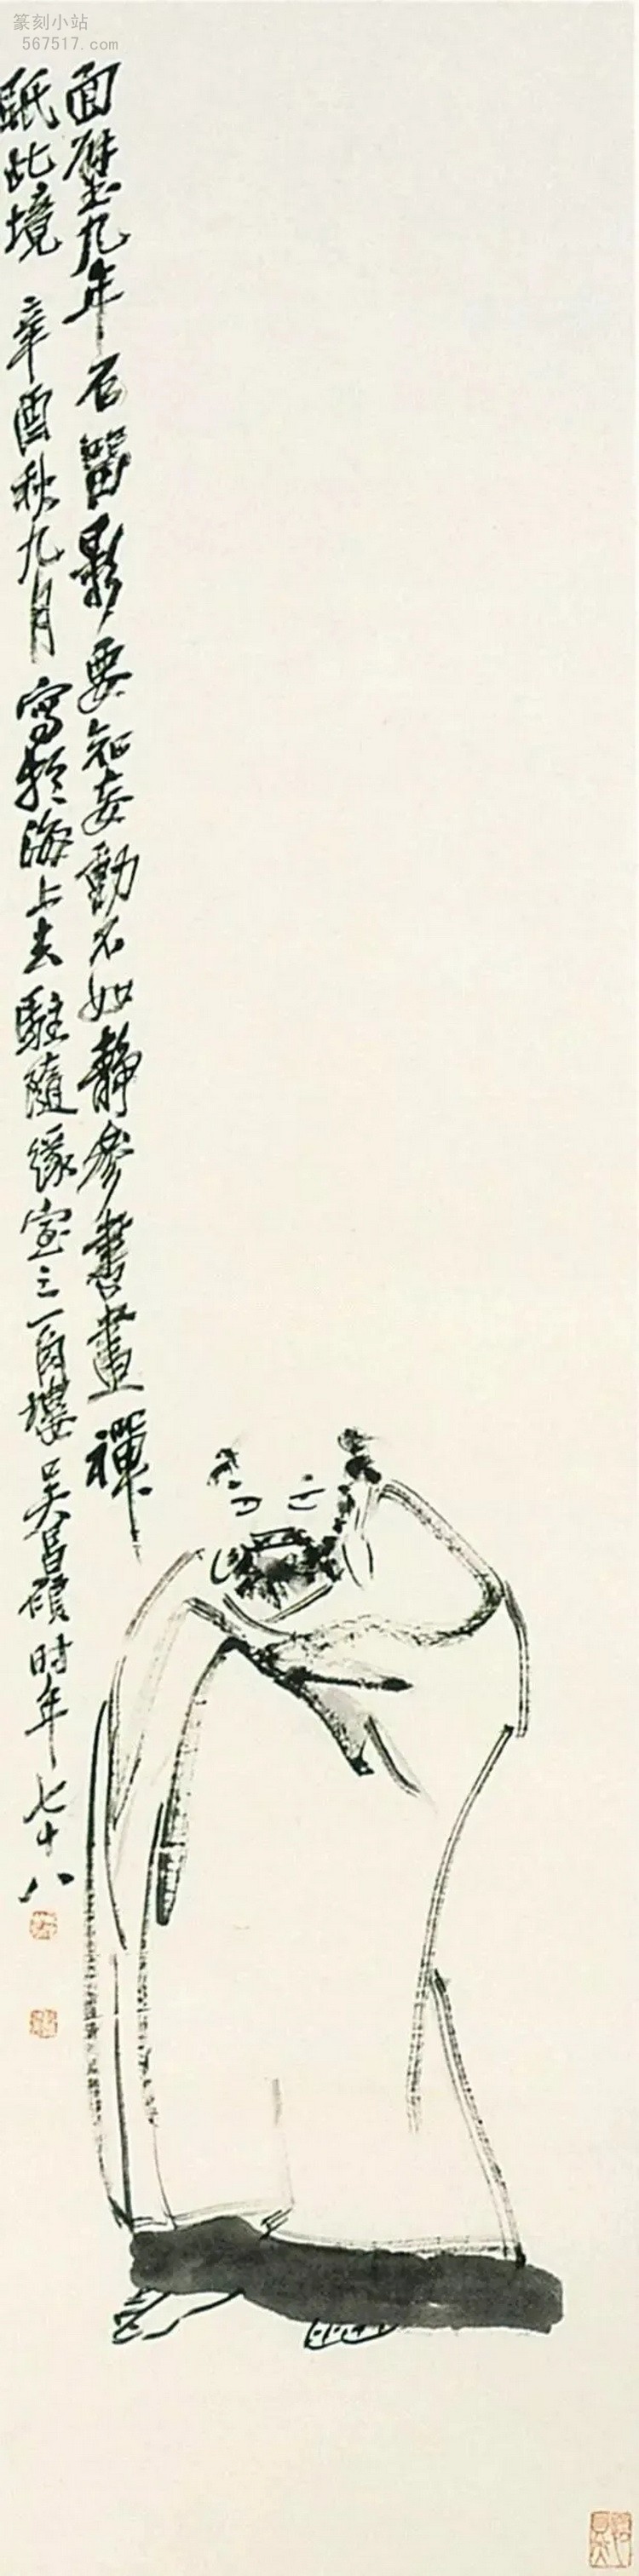 篆刻小站
567517.com
面壁九年石留影要知妄動不如靜參書畫禪
祇此境 辛酉秋九月寫於海上去駐隨緣室之一角樓吳昌碩時年七十八